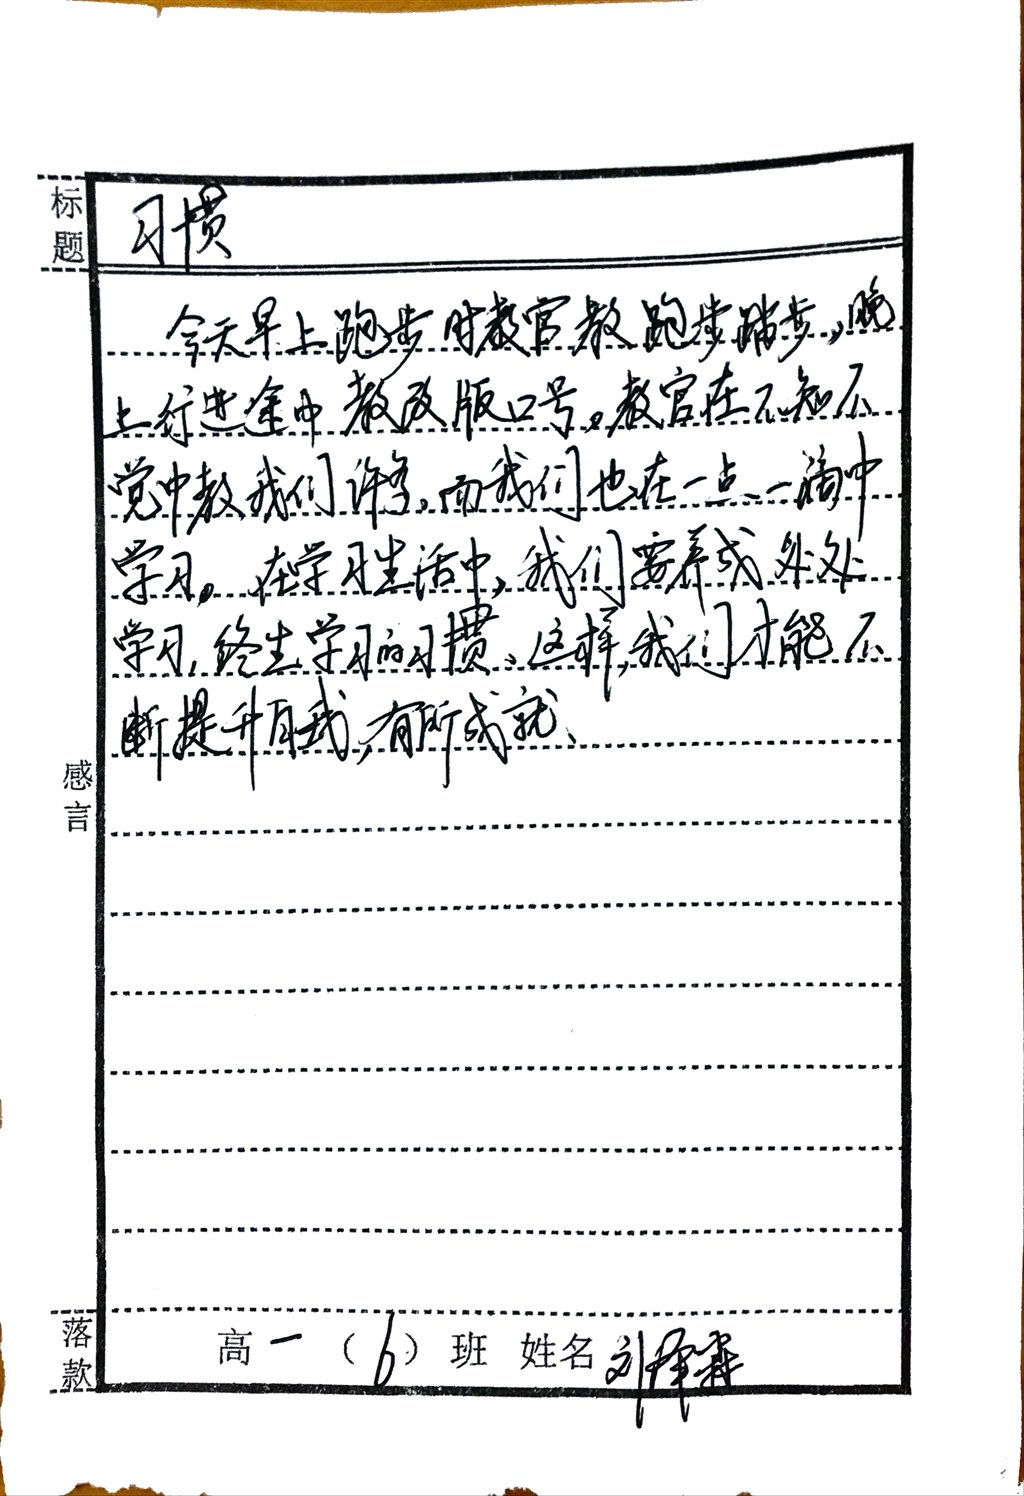 标题
习惯
今天早上跑步时教官教跑步踏步,晚
上行进途中教改版口号。教官在不知不
觉中教我们许多,而我们也在一点一滴中
学习。在学习生活中,我们要养成处处
学习,终生学习的习惯、这样,我们才能不
断提升自我,有所成就、
感言
落款
高一(6)班 姓名 刘泽霖